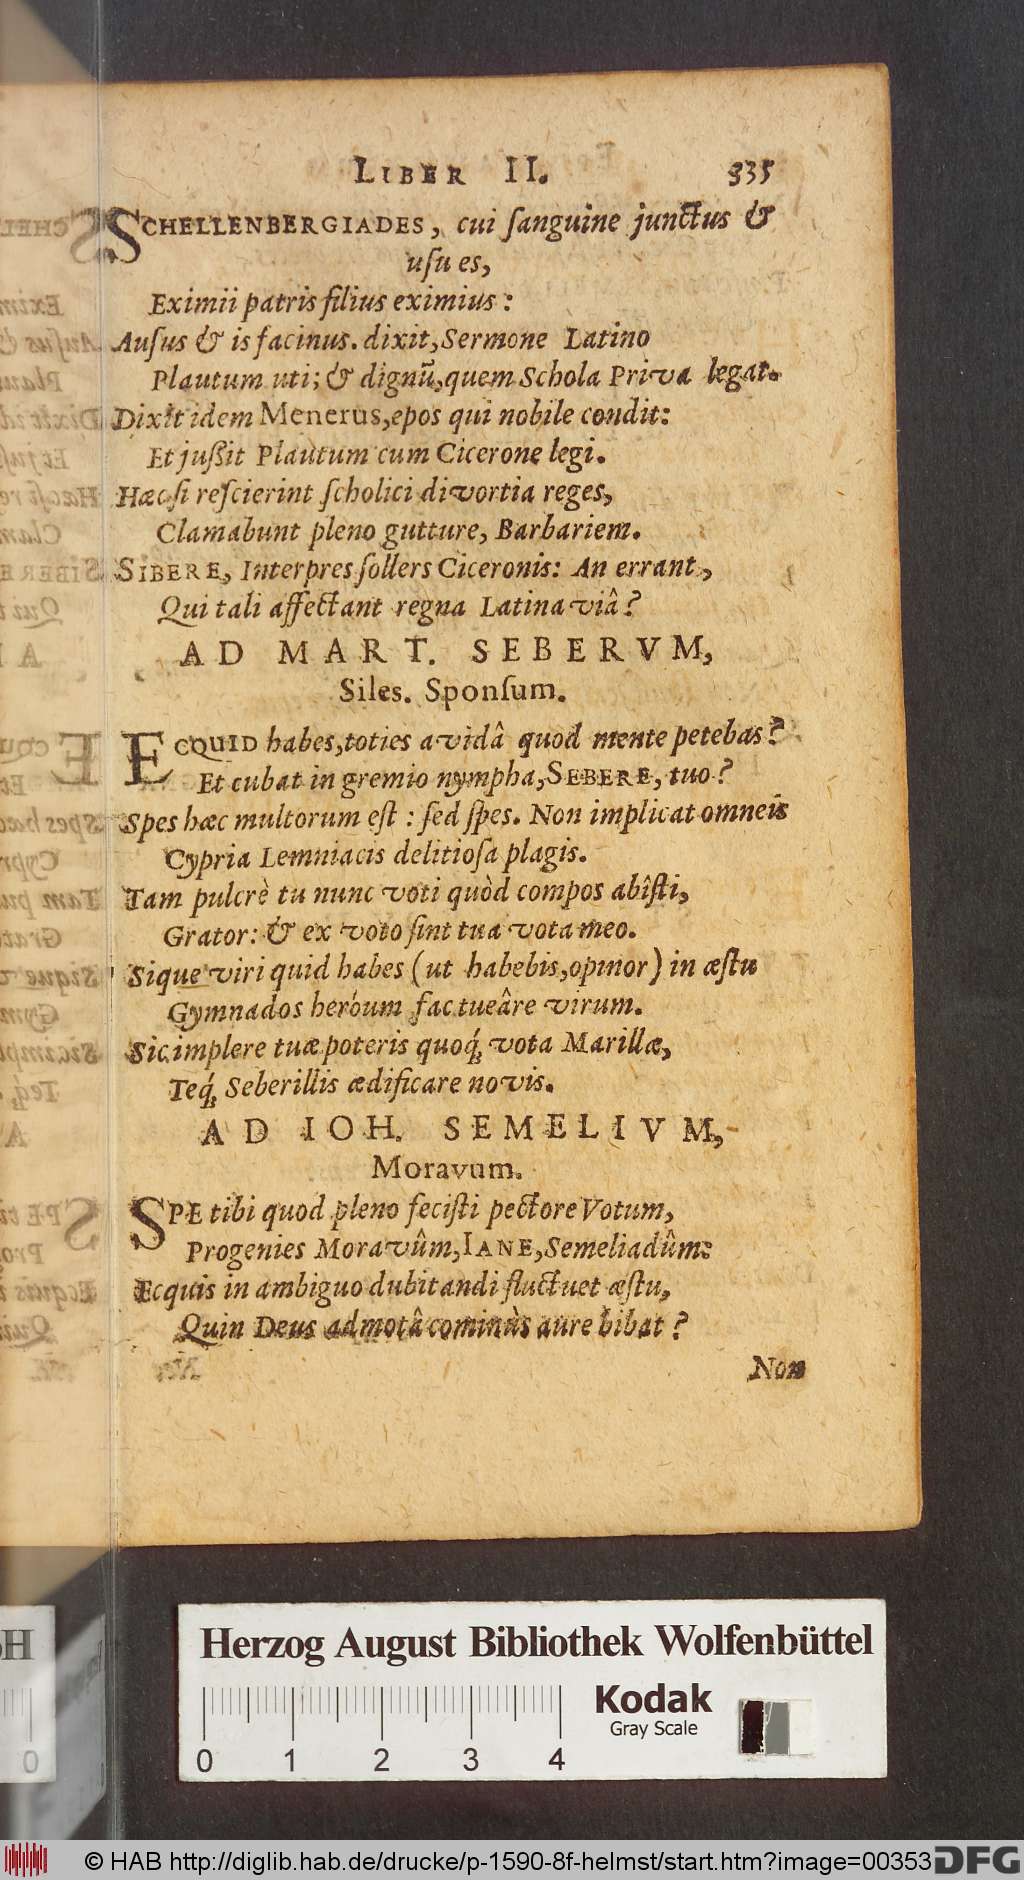 LIBER II. 335
SCHELLENBERGIADES, cui ſanguine junctus &
uſu es,
Eximii patris filius eximius:
Auſus & is facinus. dixit, Sermone Latino
Plautum uti; & dignũ, quem Schola Priva legat.
Dixit idem Menerus, epos qui nobile condit:
Et juſſit Plautum cum Cicerone legi.
Hæc ſi reſcierint ſcholici divortia reges,
Clamabunt pleno gutture, Barbariem.
SIBERE, Interpres ſollers Ciceronis: An errant,
Qui tali affectant regna Latina viâ?
AD MART. SEBERVM,
Sileſ. Sponſum.
ECQUID habes, toties avidâ quod mente petebas?
Et cubat in gremio nympha, SEBERE, tuo?
Spes hæc multorum eſt: ſed ſpes. Non implicat omneis
Cypria Lemniacis delitioſa plagis.
Tam pulcrè tu nunc voti quòd compos abîſti,
Grator: & ex voto ſint tua vota meo.
Sique viri quid habes (ut habebis, opinor) in æſtu
Gymnados herôum fac tueâre virum.
Sic implere tuæ poteris quoq́; vota Marillæ,
Teq́; Seberillis ædificare novis.
AD IOH. SEMELIVM,
Moravum.
SPE tibi quod pleno feciſti pectore Votum,
Progenies Moravûm, IANE, Semeliadûm:
Ecquis in ambiguo dubitandi fluctuet æſtu,
Quin Deus admotâ cominùs aure bibat?
Non
Herzog August Bibliothek Wolfenbüttel
Kodak
Gray Scale
0 1 2 3 4
© HAB http://diglib.hab.de/drucke/p-1590-8f-helmst/start.htm?image=00353 DFG